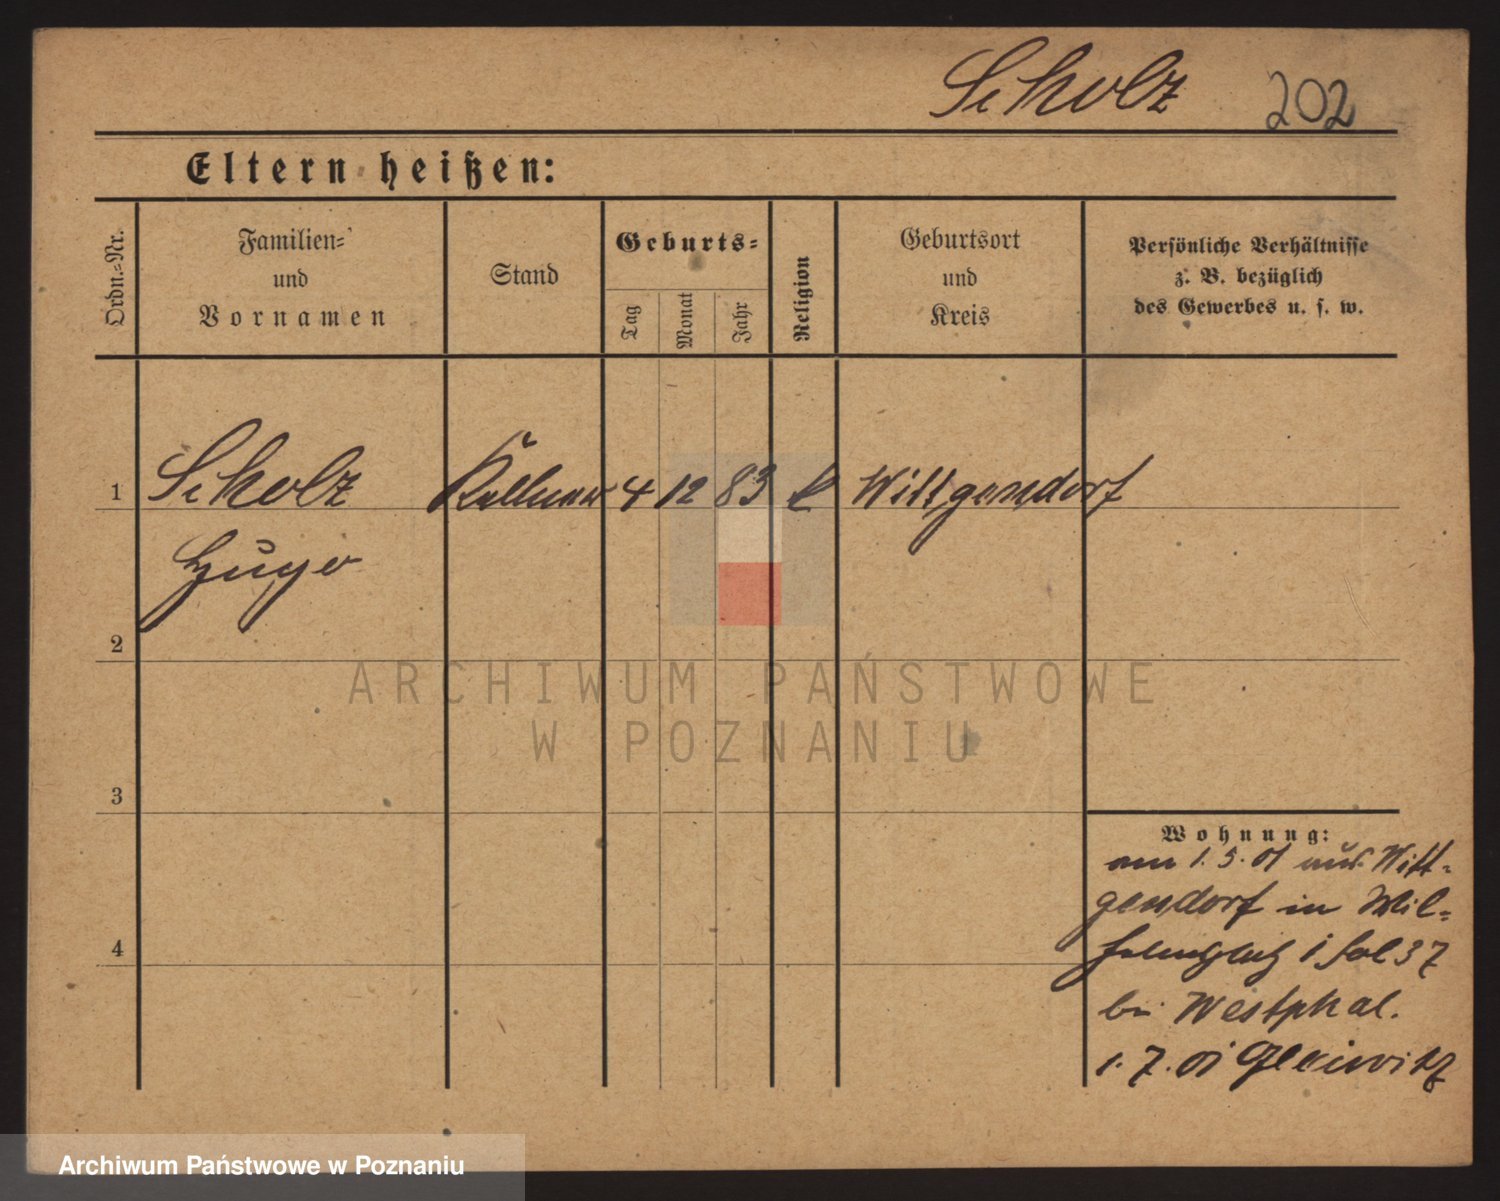 Scholz 202
Eltern heißen:
Ordn.-Nr.
Familien-
und
Vornamen
Stand
Geburts-
Tag
Monat
Jahr
Religion
Geburtsort
und
Kreis
Persönliche Verhältnisse
z. B. bezüglich
des Gewerbes u. s. w.
1 Scholz Kellner 4 12 83 k Wittgendorf
Hugo
2
3
4
Wohnung:
am 1.5.01 aus Witt-
gendorf in Wil-
37
bei Westphal.
1.7.01 Gleiwitz
ARCHIWUM PAŃSTWOWE
W POZNANIU
Archiwum Państwowe w Poznaniu